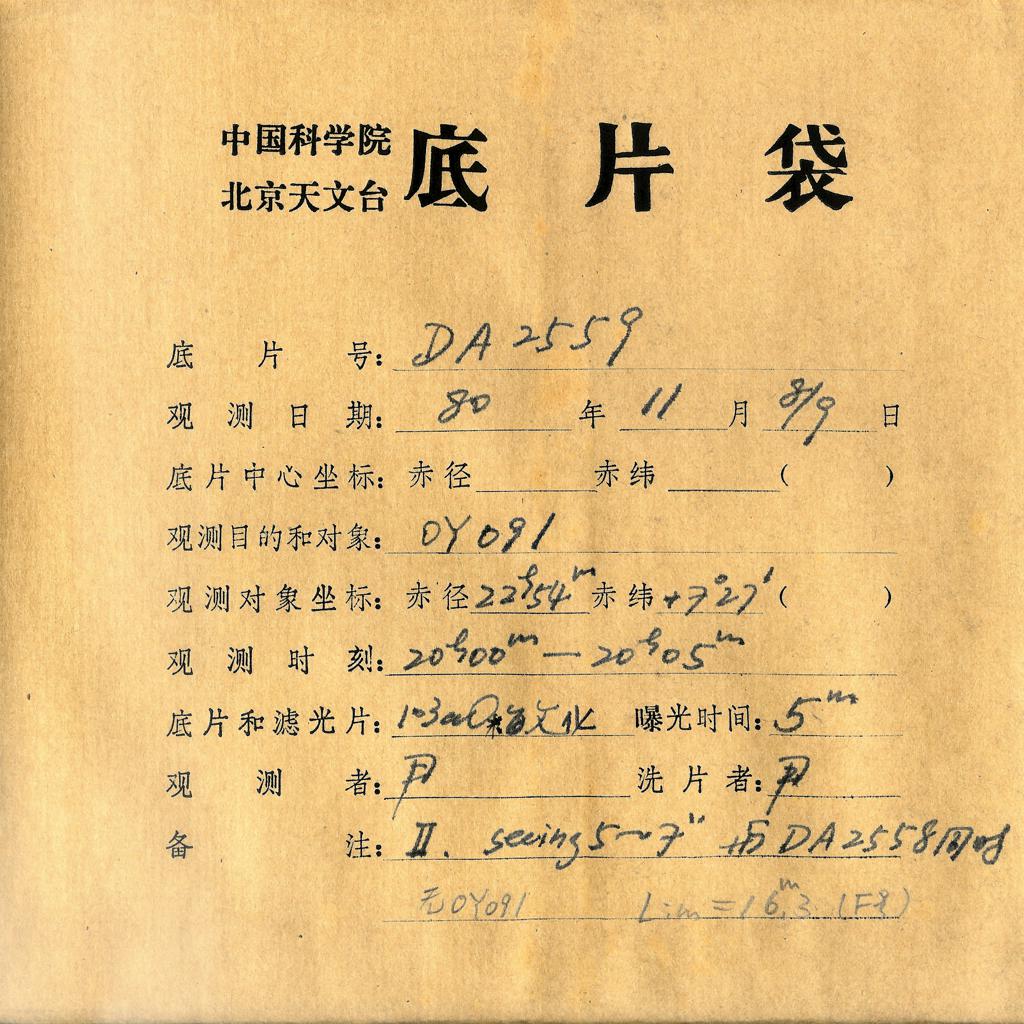 中国科学院
北京天文台
底片袋
底片号: DA2559
观测日期: 80 年 11 月 8/9 日
底片中心坐标: 赤径 赤纬 ( )
观测目的和对象: OY091
观测对象坐标: 赤径 22h54m 赤纬 +7°27′ ( )
观测时刻: 20h00m — 20h05m
底片和滤光片: 曝光时间: 5m
观测者: 尹 洗片者: 尹
备注: II. seeing 5~7" 与DA2558同时
无OY091 Lim=16.m3 (F星)